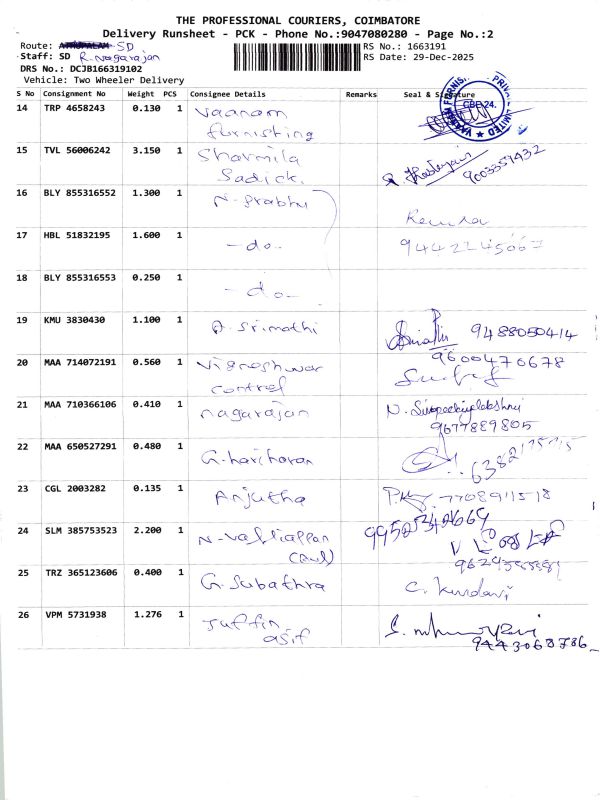 THE PROFESSIONAL COURIERS, COIMBATORE
Delivery Runsheet - PCK - Phone No.:9047080280 - Page No.:2
Route: SD
RS No.: 1663191
Staff: SD R. Nagarajan
RS Date: 29-Dec-2025
DRS No.: DCJB166319102
Vehicle: Two Wheeler Delivery
S No Consignment No Weight PCS Consignee Details Remarks Seal & Signature
14 TRP 4658243 0.130 1 Vaanam
furnishing
CBE 24.
15 TVL 56006242 3.150 1 Sharmila
Sadick.
9003359432
16 BLY 855316552 1.300 1 N. Prabhu
Renuka
17 HBL 51832195 1.600 1 -do-
18 BLY 855316553 0.250 1 -do-
19 KMU 3830430 1.100 1 A. Srimathi 9488050414
20 MAA 714072191 0.560 1 Vigneshwar
control
9600470678
21 MAA 710366106 0.410 1 nagarajan
9677889805
22 MAA 650527291 0.480 1 G. hariharan
23 CGL 2003282 0.135 1 Anjutha
24 SLM 385753523 2.200 1 N. Valliappan
25 TRZ 365123606 0.400 1 G. Subathra
26 VPM 5731938 1.276 1 Juffin
asif
9443068786